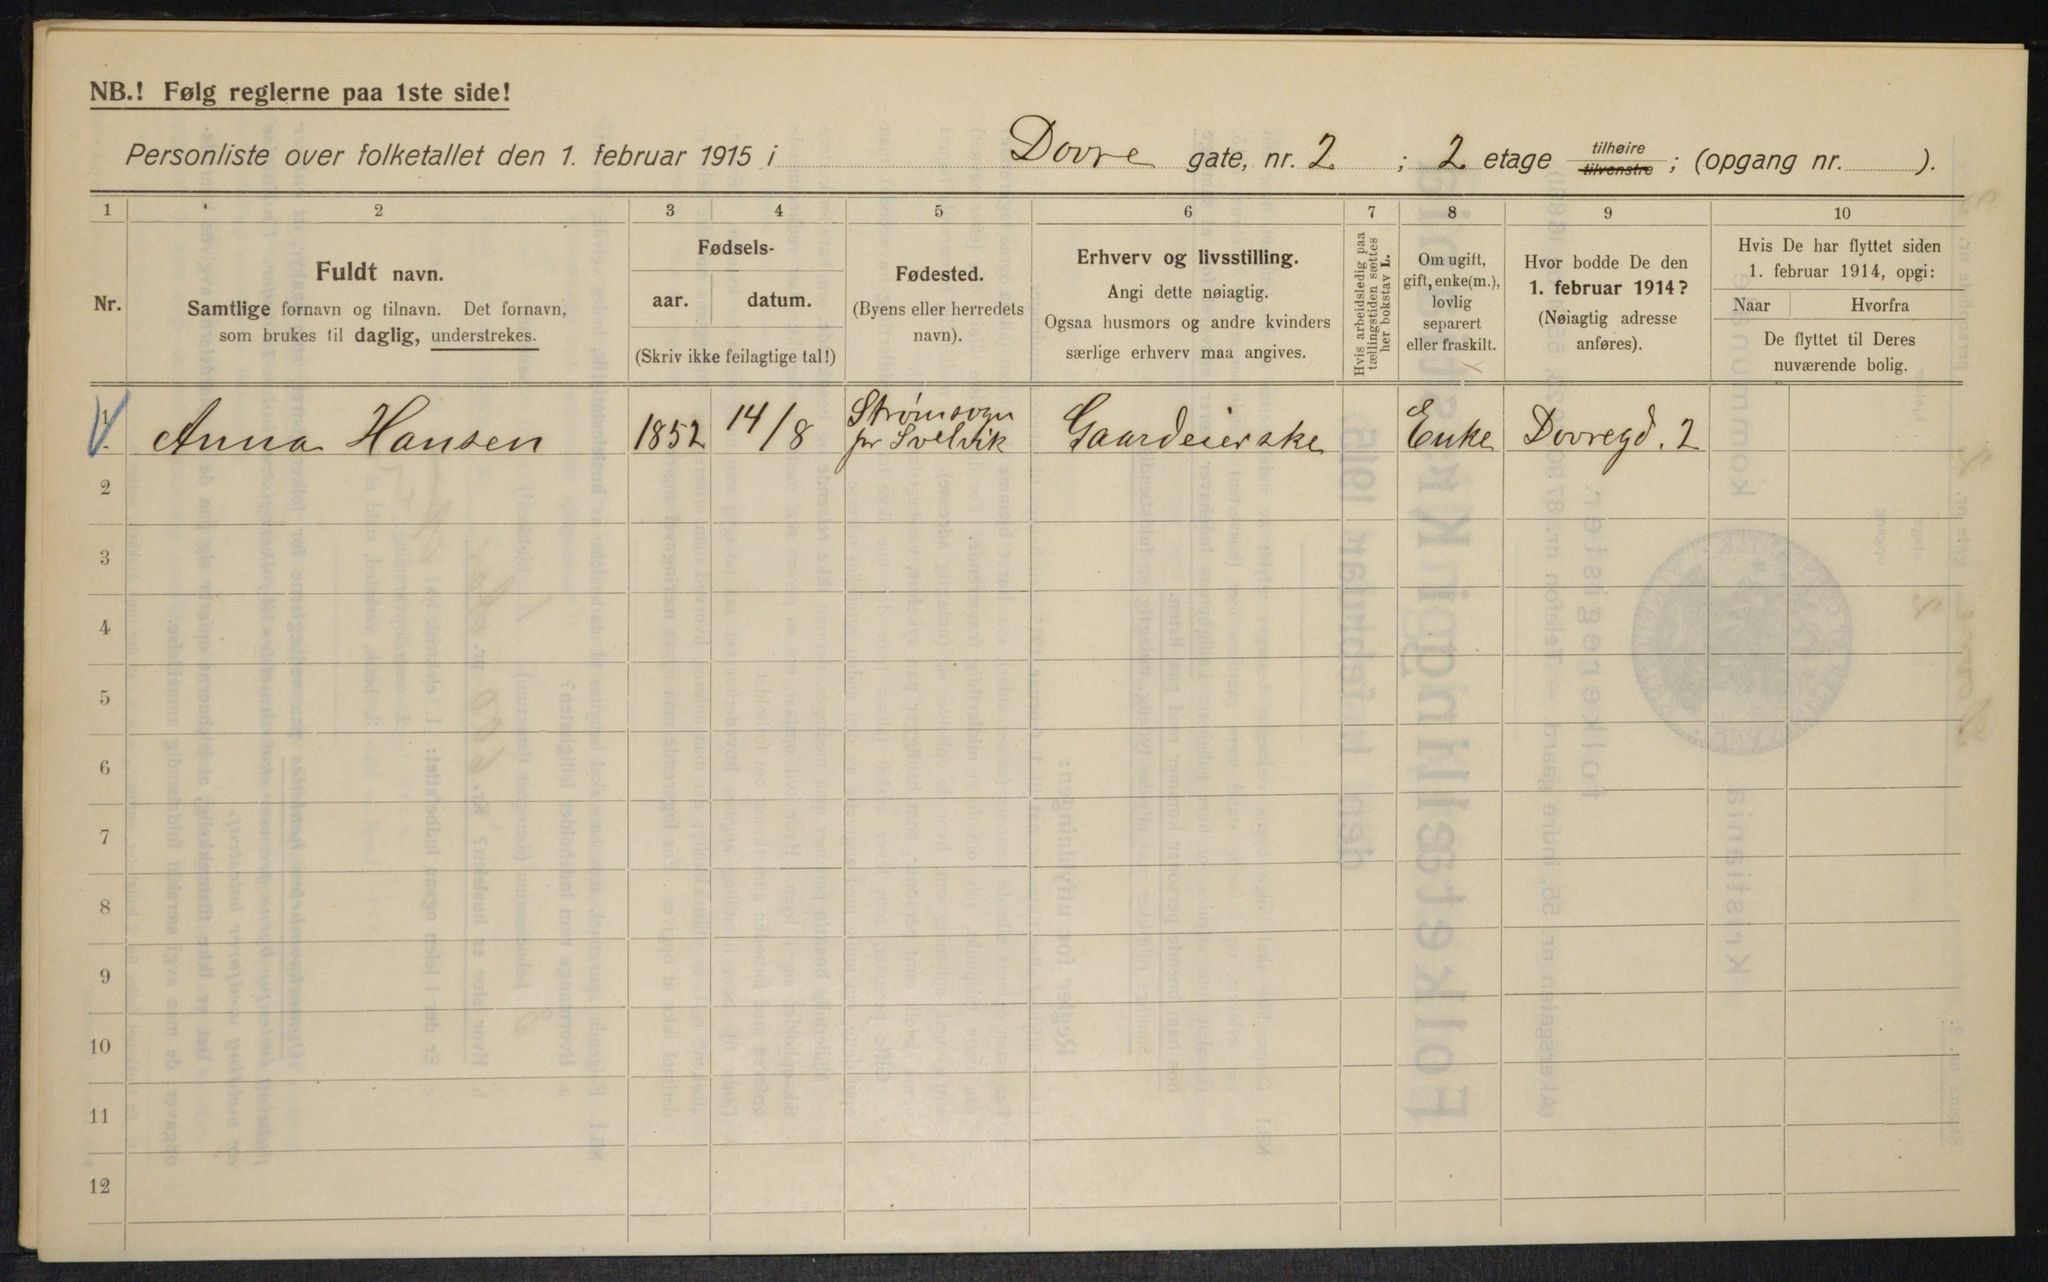 NB.! Følg reglerne paa 1ste side!
Personliste over folketallet den 1. februar 1915 i Dovre gate, nr. 2 ; 2 etage tilhøire tilvenstre ; (opgang nr. ).
1 2 3 4 5 6 7 8 9 10
Nr.
Fuldt navn.
Samtlige fornavn og tilnavn. Det fornavn,
som brukes til daglig, understrekes.
Fødsels-
aar. datum.
(Skriv ikke feilagtige tal!)
Fødested.
(Byens eller herredets
navn).
Erhverv og livsstilling.
Angi dette nøiagtig.
Ogsaa husmors og andre kvinders
særlige erhverv maa angives.
Hvis arbeidsledig paa
tællingstiden sættes
her bokstav L.
Om ugift,
gift, enke(m.),
lovlig
separert
eller fraskilt.
Hvor bodde De den
1. februar 1914?
(Nøiagtig adresse
anføres).
Hvis De har flyttet siden
1. februar 1914, opgi:
Naar Hvorfra
De flyttet til Deres
nuværende bolig.
1 Anna Hansen 1852 14/8 Strømsogn pr Svelvik Gaardeierske Enke Dovregd. 2
2
3
4
5
6
7
8
9
10
11
12